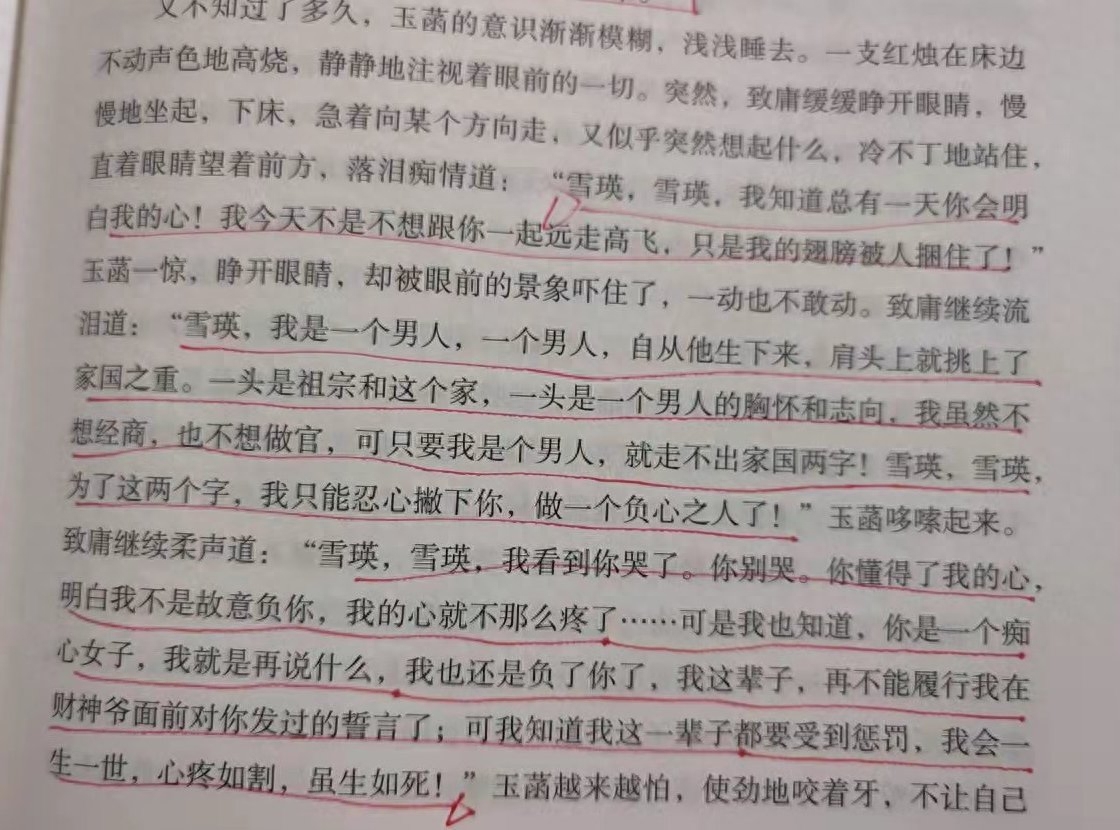 又不知过了多久，玉菡的意识渐渐模糊，浅浅睡去。一支红烛在床边
不动声色地高烧，静静地注视着眼前的一切。突然，致庸缓缓睁开眼睛，慢
慢地坐起，下床，急着向某个方向走，又似乎突然想起什么，冷不丁地站住，
直着眼睛望着前方，落泪痴情道：“雪瑛，雪瑛，我知道总有一天你会明
白我的心！我今天不是不想跟你一起远走高飞，只是我的翅膀被人捆住了！”
玉菡一惊，睁开眼睛，却被眼前的景象吓住了，一动也不敢动。致庸继续流
泪道：“雪瑛，我是一个男人，一个男人，自从他生下来，肩头上就挑上了
家国之重。一头是祖宗和这个家，一头是一个男人的胸怀和志向，我虽然不
想经商，也不想做官，可只要我是个男人，就走不出家国两字！雪瑛，雪瑛，
为了这两个字，我只能忍心撇下你，做一个负心之人了！”玉菡哆嗦起来。
致庸继续柔声道：“雪瑛，雪瑛，我看到你哭了。你别哭。你懂得了我的心，
明白我不是故意负你，我的心就不那么疼了……可是我也知道，你是一个痴
心女子，我就是再说什么，我也还是负了你了，我这辈子，再不能履行我在
财神爷面前对你发过的誓言了；可我知道我这一辈子都要受到惩罚，我会一
生一世，心疼如割，虽生如死！”玉菡越来越怕，使劲地咬着牙，不让自己